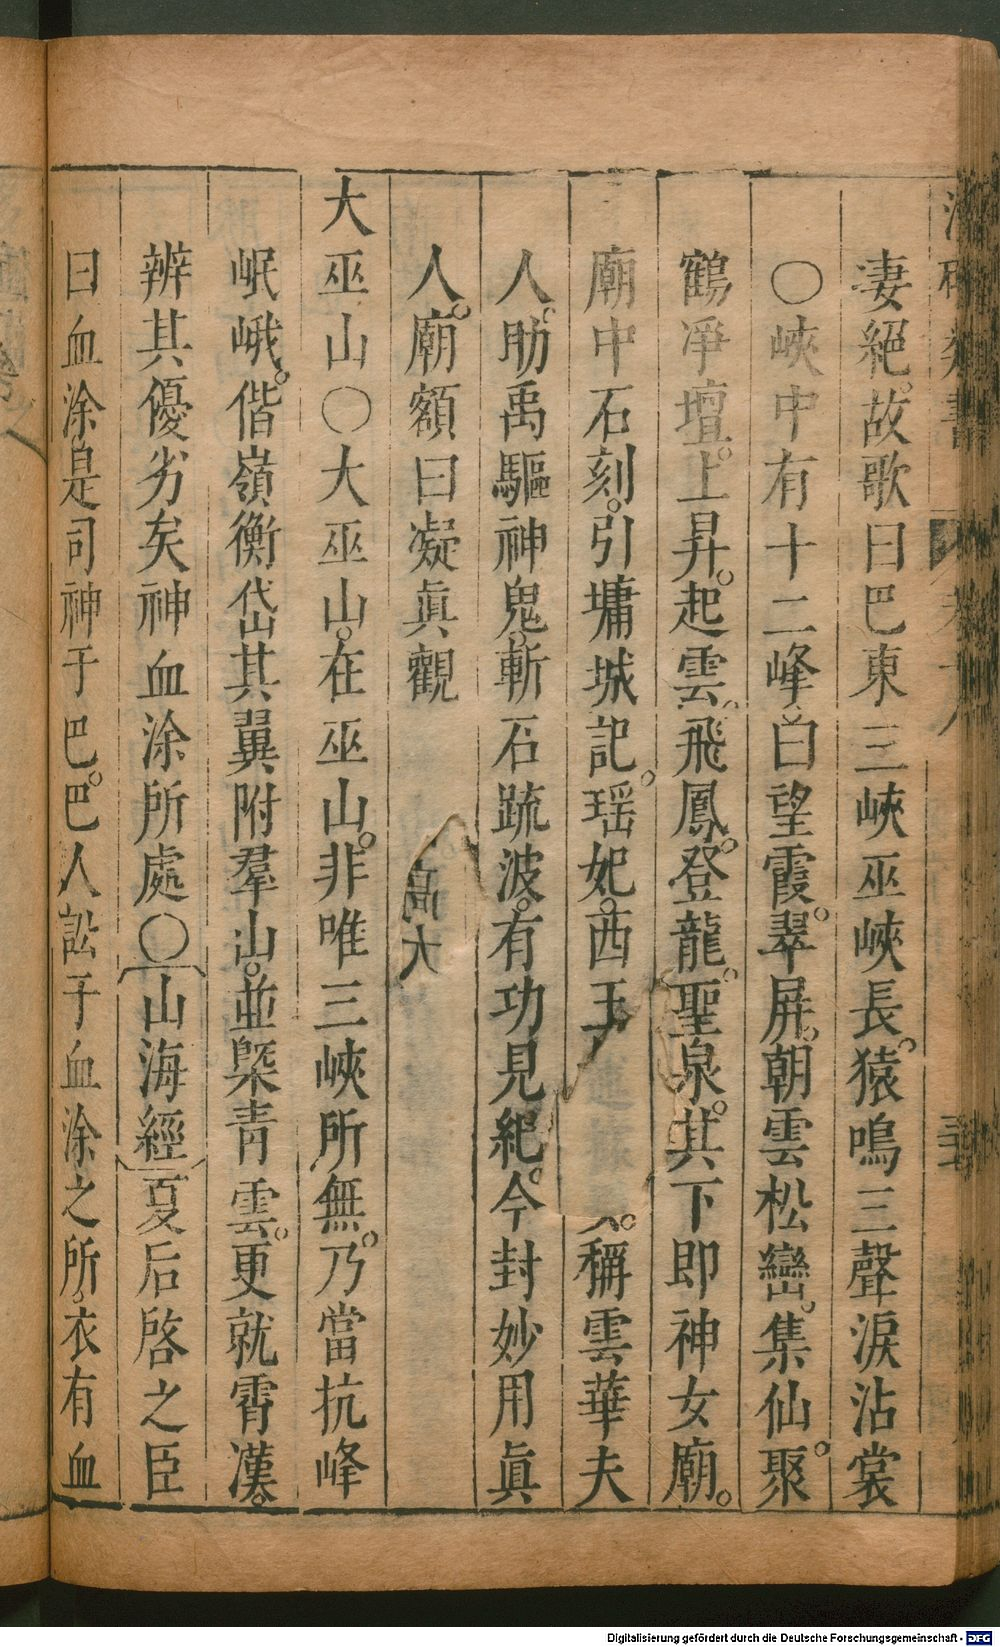 凄絕故歌曰巴東三峽巫峽長。猿鳴三聲淚沾裳
○峽中有十二峰曰望霞。翠屏。朝雲松巒。集仙。聚
鶴凈壇。上昇。起雲。飛鳳。登龍。聖泉。其下即神女廟。
廟中石刻。引墉城記。瑶妃。西王 人。稱雲華夫
人。肋禹驅神鬼。斬石䟽波。有功見紀。今封妙用眞
人。廟額曰凝眞觀
大巫山○大巫山。在巫山。非唯三峽所無。乃當抗峰
岷峨。偕嶺衡岱其翼附羣山。並槩青雲。更就霄漢。
辨其優劣矣神血涂所處○山海經夏后啓之臣
曰血涂是司神于巴。巴人訟于血涂之所。衣有血
Digitalisierung gefördert durch die Deutsche Forschungsgemeinschaft - DFG